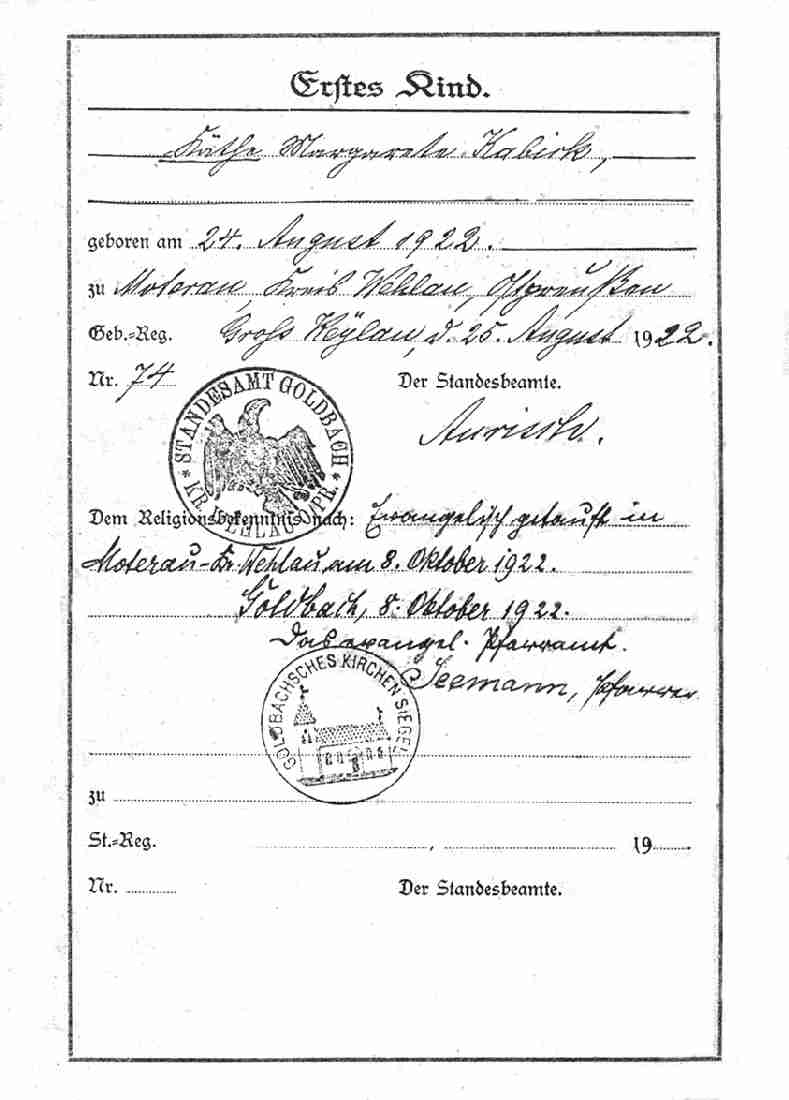 Erstes Kind.
Käthe Margarete Kabick,
geboren am 24. August 1922.
zu Moterau, Kreis Wehlau, Ostpreußen
Geb.=Reg. Gross Keylau, d. 25. August 1922.
Nr. 74 Der Standesbeamte.
* STANDESAMT GOLDBACH *
KR. WEHLAU O/PR.
Aurisch.
Dem Religionsbekenntnis nach: Evangelisch getauft in
Moterau-Kr. Wehlau am 8. Oktober 1922.
Goldbach, 8. Oktober 1922.
Das evangel. Pfarramt.
Seemann, Pfarrer
GOLDBACHSCHES KIRCHEN SIEGEL
zu
St.=Reg. , 19
Nr. Der Standesbeamte.